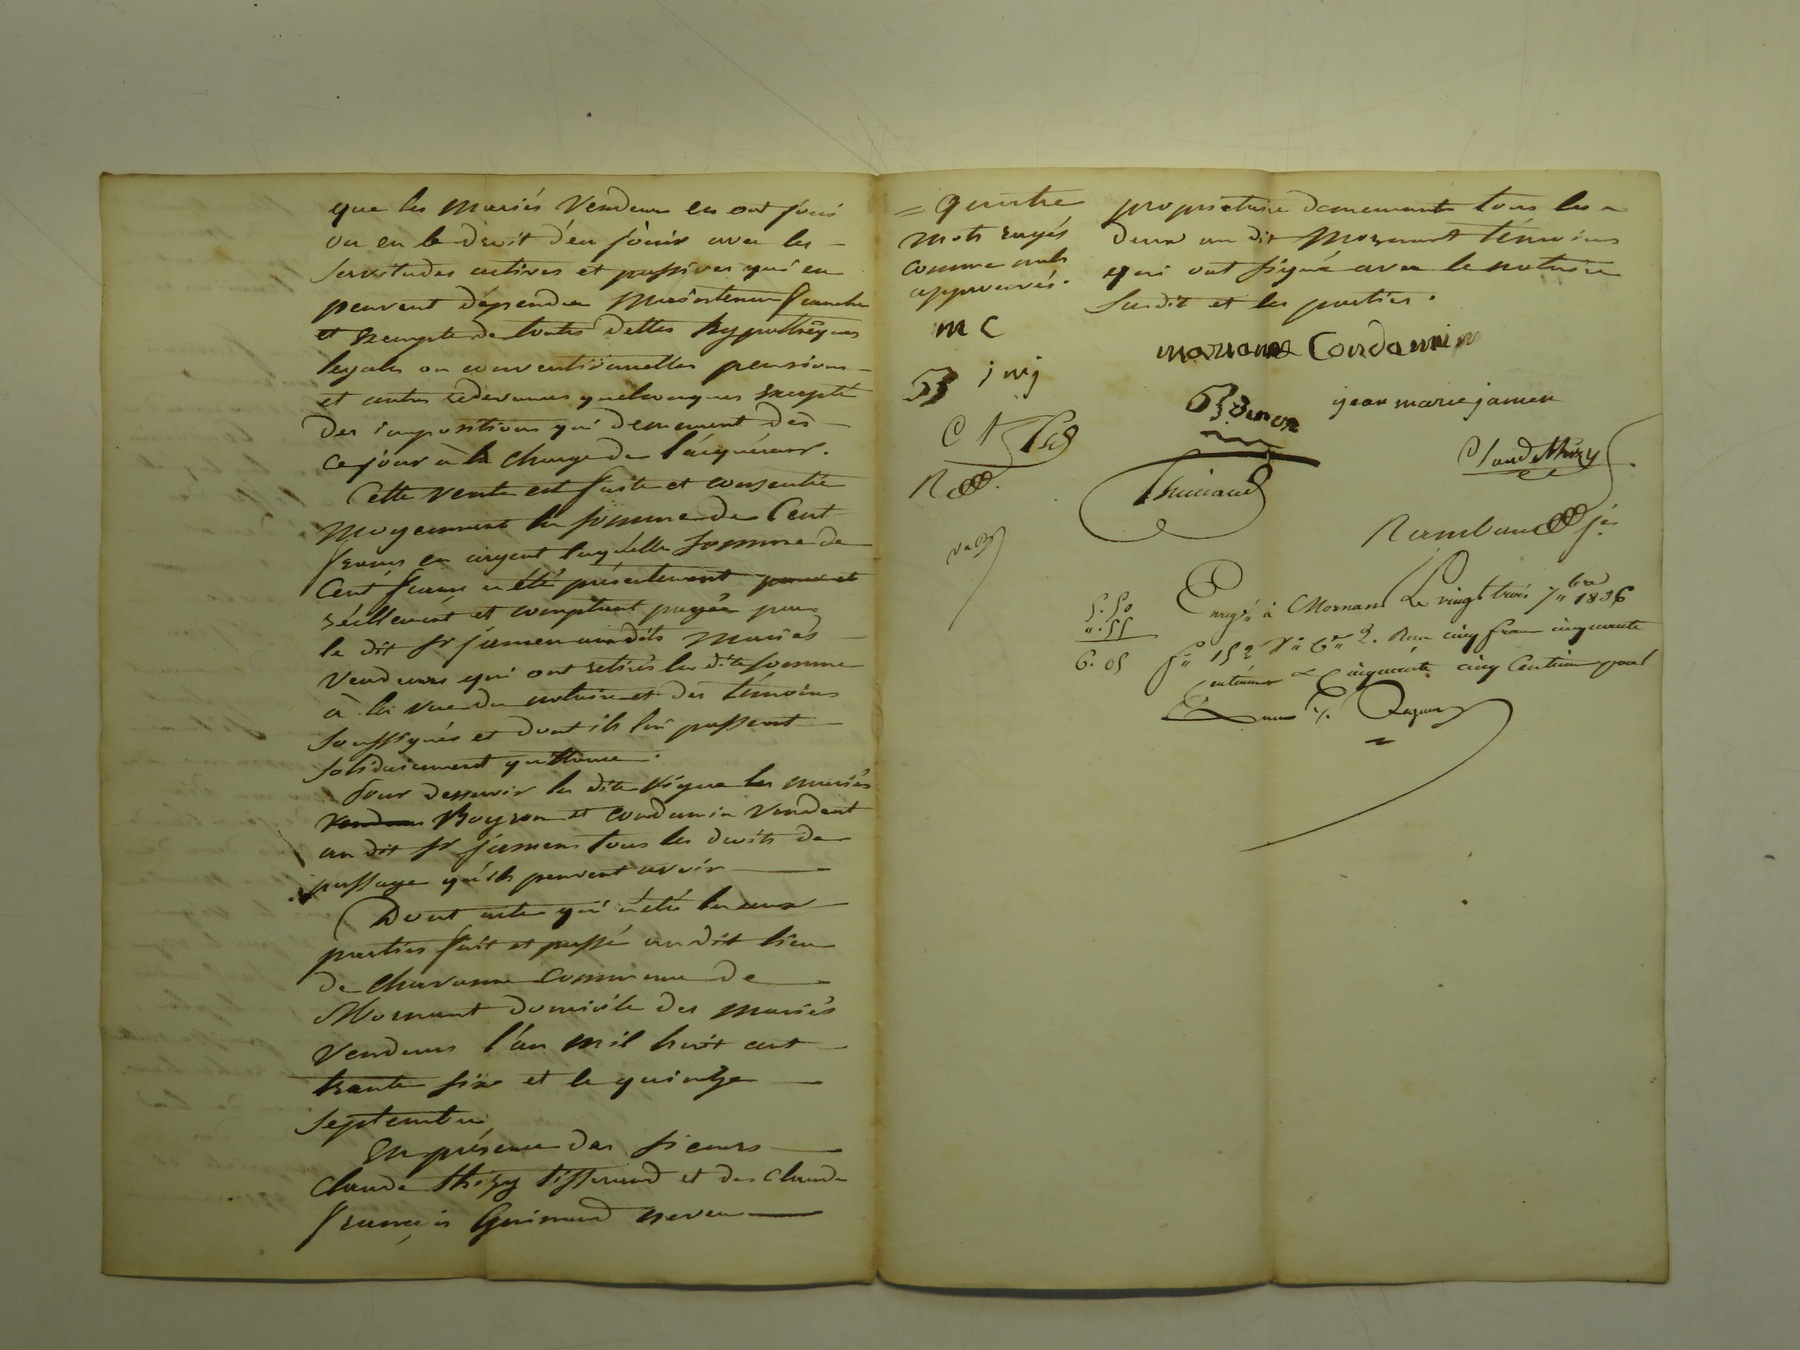 que les mariés Vendeurs en ont joui
ou eu le droit d'en jouir avec les
servitudes actives et passives qui en
peuvent dépendre maintenue franche
et exempte de toutes dettes hypothèques
légales ou conventionnelles pensions
et autres redevances quelconques excepté
des impositions qui demeurent dès
ce jour à la charge de l'acquéreur.
Cette vente est faite et consentie
moyennant la somme de Cent
francs en argent laquelle somme de
Cent francs a été présentement et
réellement et comptant payée par
le dit Sr jamen aux dits mariés
Vendeurs qui ont retiré la dite somme
à la vue du notaire et des témoins
soussignés et dont ils lui passent
solidairement quittance.
Pour desservir la dite vigne les mariés
Vendeurs Boyron et condamin Vendent
au dit Sr jamen tous les droits de
passage qu'ils peuvent avoir
Dont acte qui a été lu aux
parties fait et passé au dit lieu
de chavanne commune de
Mornant domicile des mariés
Vendeurs l'an mil huit cent
trente six et le quinze
septembre
En présence des sieurs
Claude thizy tisserand et de Claude
françois Guinand neveu
= quatre
mots rayés
comme nuls
approuvés.
mc
jmj
propriétaire demeurants tous les
deux au dit Mornant témoins
qui ont signé avec le notaire
susdit et les parties.
marianne Condamin
jean marie jamen
Claude thizy
Guinand
Rambaud je.
5. 50
". 55
6. 05
Enregé à Mornant Le vingt trois 7bre 1836
fo 152 Vo Ce 2. Reçu cinq francs cinquante
Centimes et Cinquante cinq Centimes pour